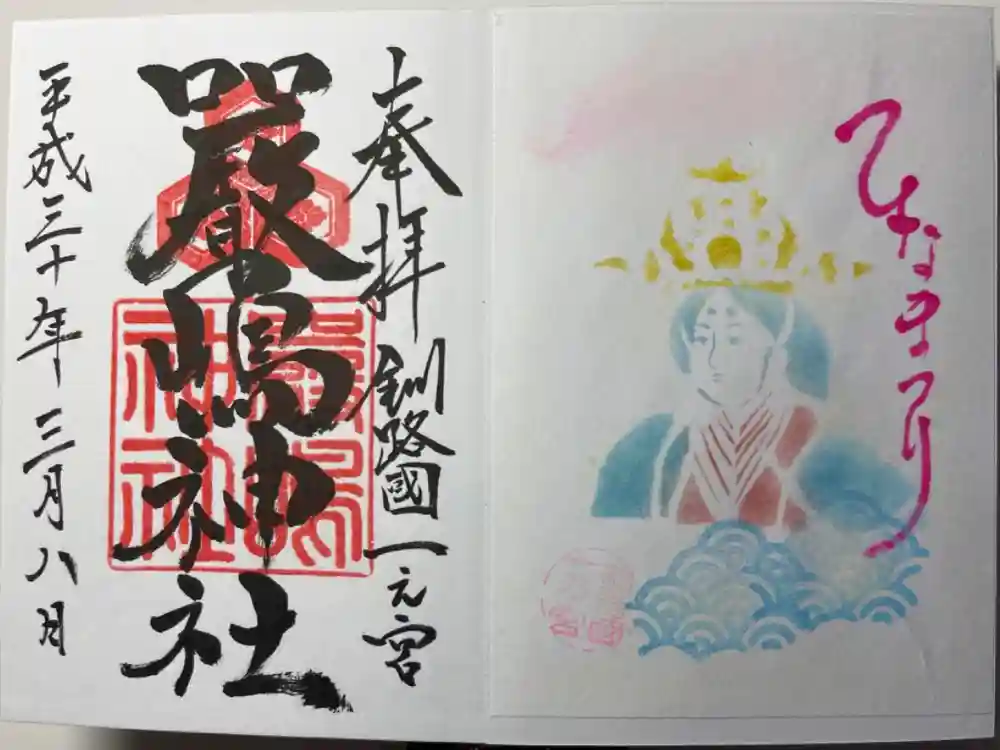 ひなまつり
奉拝 釧路國一之宮
嚴嶋神社
嚴嶋神社
平成三十年 三月八日